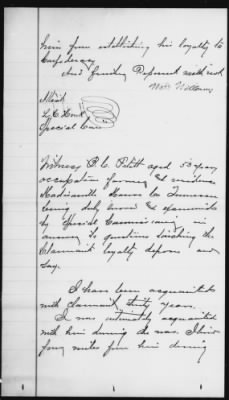 him from establishing his loyalty to
Confederacy
And further Deponent saith not
Williams
Attest
Special Com
Witness P. C. Petitt aged 52 years
occupation farming & residence
Madisonville Monroe Co Tennessee
being duly sworn & examined
by Special Commissioner in
answer to questions touching the
Claimants loyalty deposes and
say.
I have been acquainted
with claimant thirty years.
I was intimately acquainted
with him during the war. I lived
four miles from him during